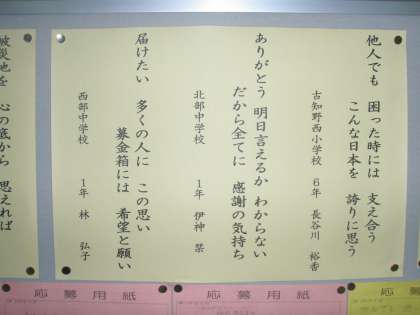 他人でも 困った時には 支え合う
こんな日本を 誇りに思う
古知野西小学校 6年 長谷川 裕香
ありがとう 明日言えるか わからない
だから全てに 感謝の気持ち
北部中学校 1年 伊神 栞
届けたい 多くの人に この思い
募金箱には 希望と願い
西部中学校 1年 林 弘子
被災地を 心の底から 思えれば
応募用紙
応募用紙
応募